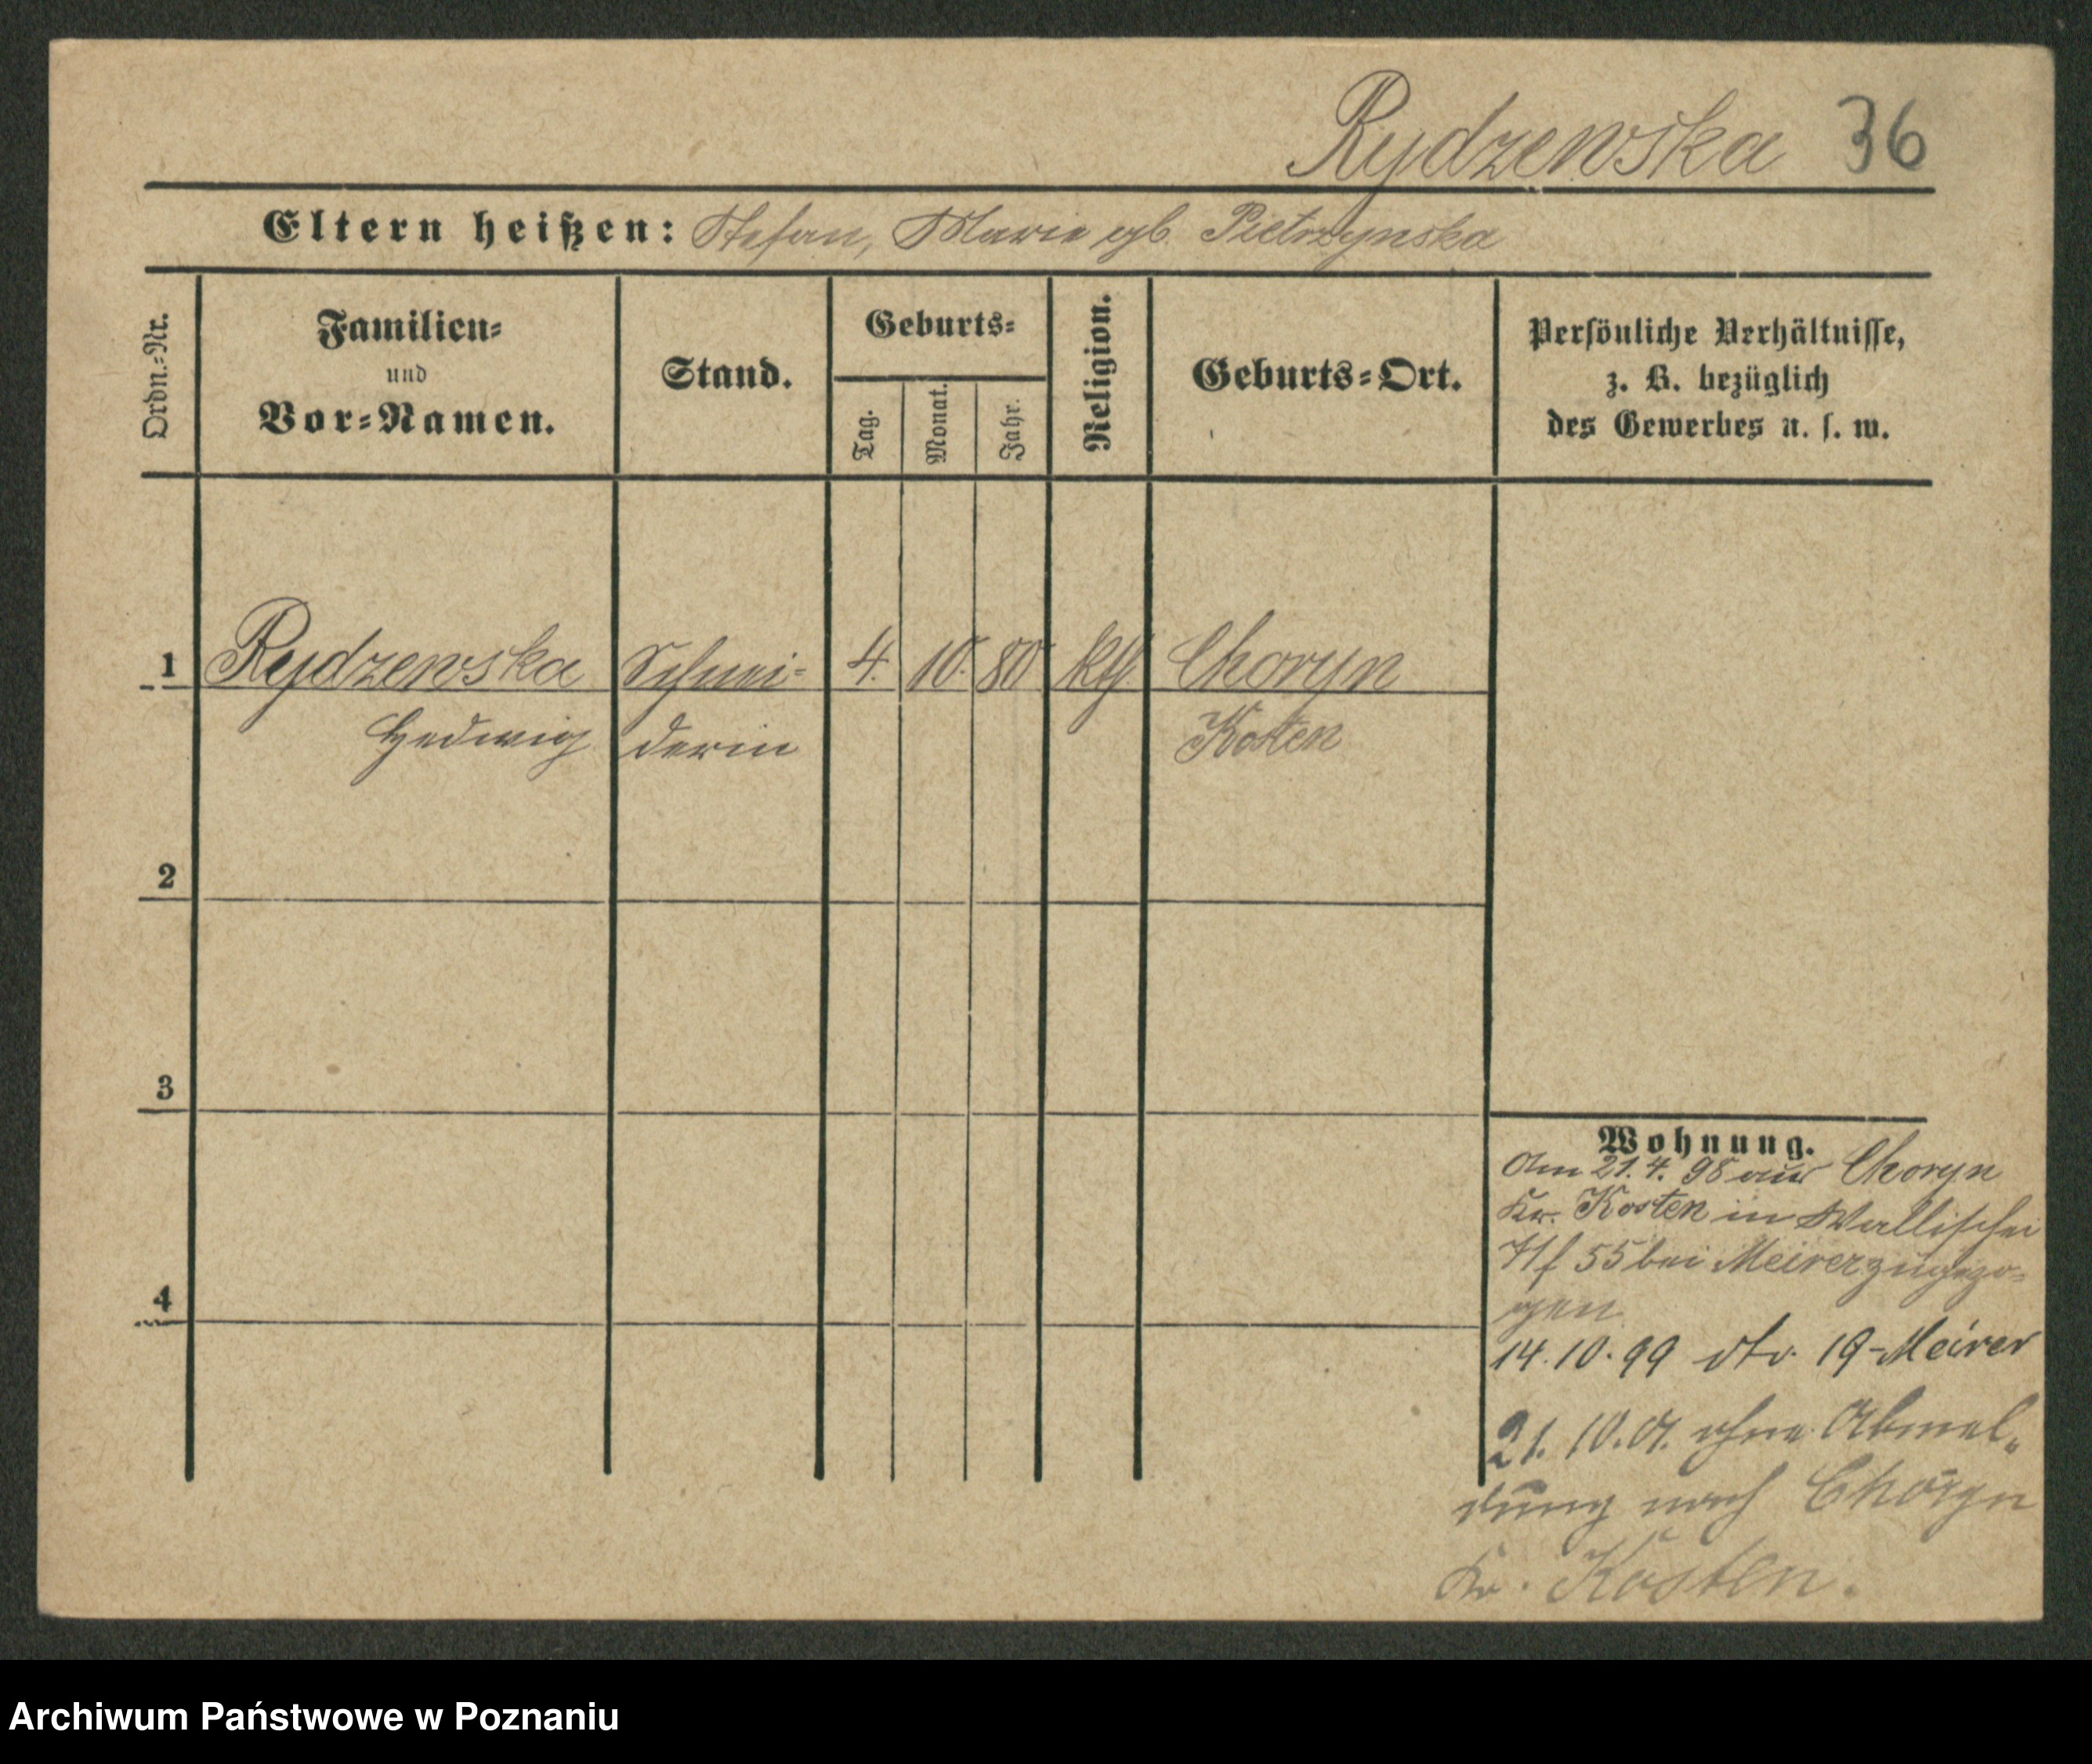 Rydzewska 36
Eltern heißen: Stefan, Marie gb. Pietrzynska
Ordn.-Nr.
Familien-
und
Vor-Namen.
Stand.
Geburts-
Tag.
Monat.
Jahr.
Religion.
Geburts-Ort.
Persönliche Verhältnisse,
z. B. bezüglich
des Gewerbes u. s. w.
1 Rydzewska Schnei- 4. 10. 80 kth Choryn
Hedwig derin Kosten
2
3
4
Wohnung.
Am 21. 4. 98 aus Choryn
Kr. Kosten in Wallischei
55 bei Meirer zugezo-
gen.
14. 10. 99 dto. 19 - Meirer
21. 10. 01. ohne Abmel-
dung nach Choryn
Kr. Kosten.
Archiwum Państwowe w Poznaniu